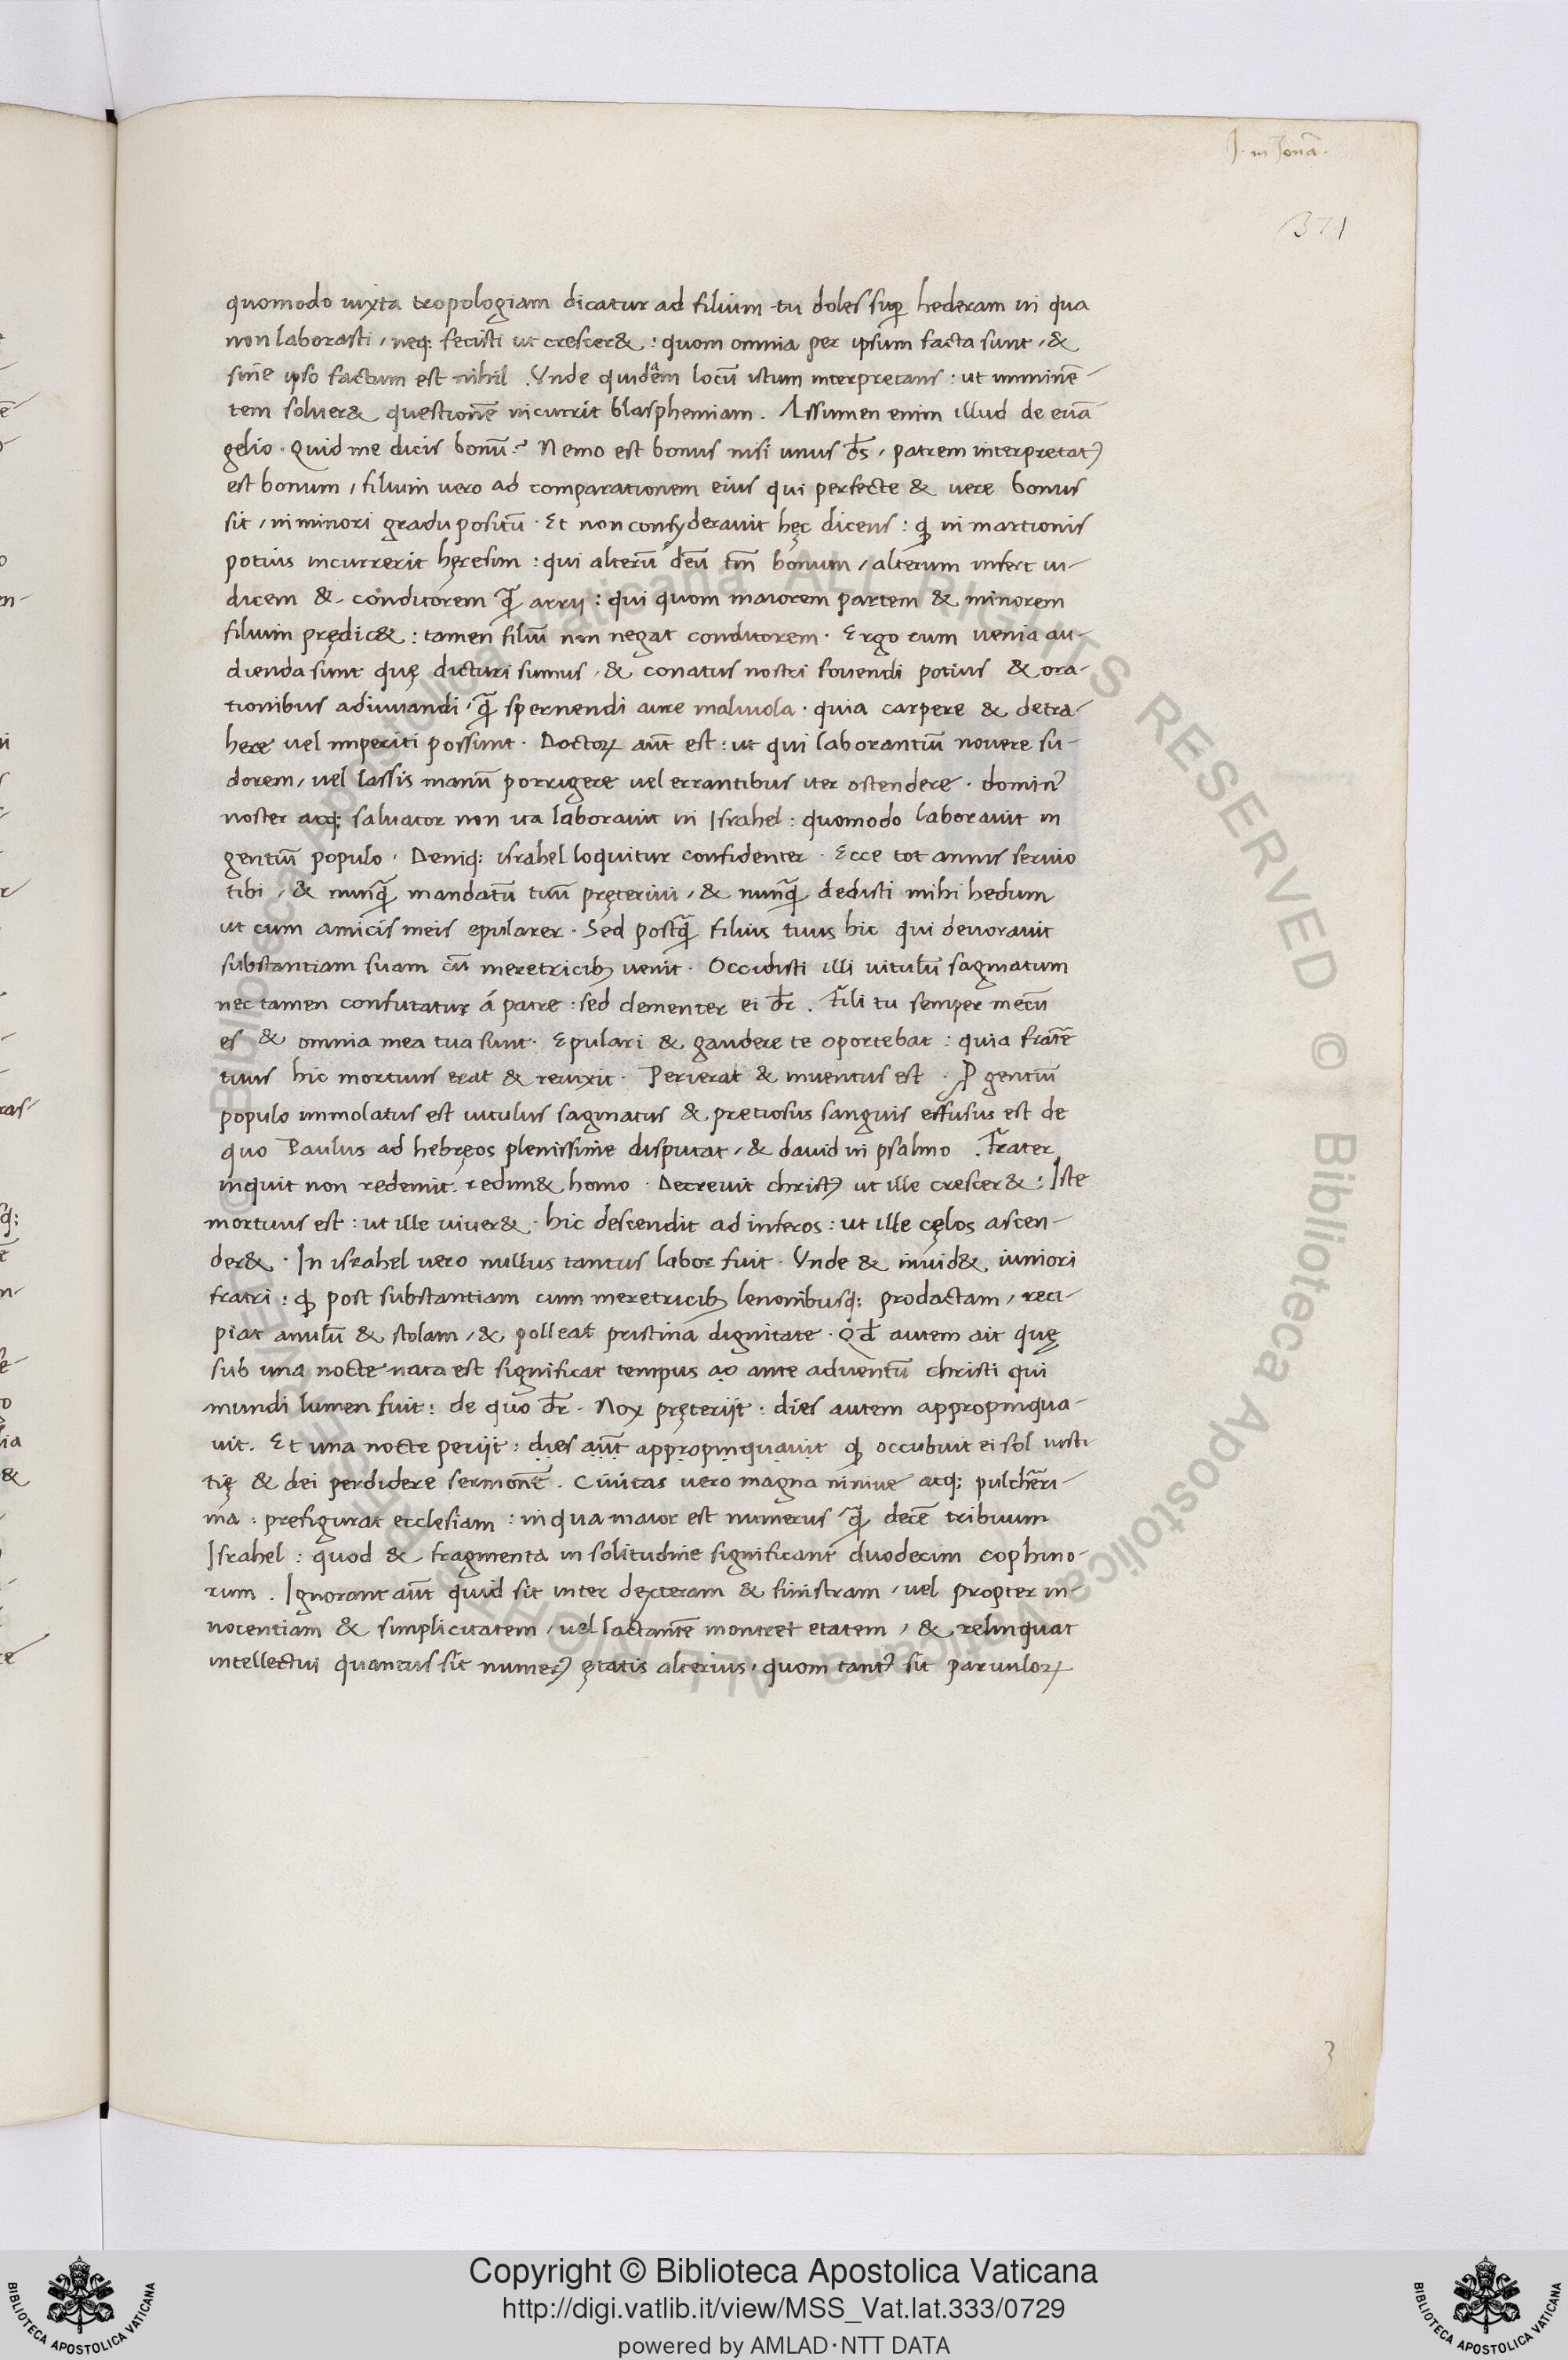 J. in Jonā.
371
quomodo iuxta tropologiam dicatur ad filium tu doles suꝑ hederam in qua
non laborasti, neq; fecisti ut crescer&: quom omnia per ipsum facta sunt, &
sine ipso factum est nihil. Vnde quidem locū istum interpretans: ut imminē-
tem soluer& questionē incurrit blasphemiam. Assumen enim illud de euā
gelio. Quid me dicis bonū? Nemo est bonus nisi unus d̄s, patrem interpretatꝰ
est bonum, filium vero ad comparationem eius qui perfecte & vere bonus
sit, in minori gradu positū. Et non consyderauit hęc dicens: ꝙ in martionis
potius incurrerit hęresim: qui alterū deū tm̄ bonum, alterum infert iu-
dicem & conditorem ꝙ̄ arrij: qui quom maiorem partem & minorem
filium prędic&: tamen filiū non negat conditorem. Ergo cum uenia au-
dienda sunt quę dicturi sumus, & conatus nostri fouendi potius & ora-
tionibus adiuuandi, ꝙ̄ spernendi aure maliuola. quia carpere & detra-
here uel imperiti possunt. Doctoꝝ aūt est: ut qui laborantiū nouere su-
dorem, uel lassis manū porrigere uel errantibus iter ostendere. dominꝰ
noster atq; saluator non ita laborauit in Israhel: quomodo laborauit in
gentiū populo. Deniq; israhel loquitur confidenter. Ecce tot annis seruio
tibi, & nunꝙ̄ mandatū tuū pręteriui, & nunꝙ̄ dedisti mihi hedum
ut cum amicis meis epularer. Sed postꝙ̄ filius tuus hic qui deuorauit
substantiam suam cū meretricibꝫ uenit. Occidisti illi uitulū saginatum
nec tamen confutatur á patre: sed clementer ei dr̄. Fili tu semper mecū
es & omnia mea tua sunt. Epulari & gaudere te oportebat: quia fratē
tuus hic mortuus erat & reuixit. Perierat & inuentus est. P gentiū
populo immolatus est uitulus saginatus & pretiosus sanguis effusus est de
quo Paulus ad hebręos plenissime disputat, & dauid in psalmo. Frater
inquit non redemit. redim& homo. Decreuit christꝰ ut ille crescer&: Iste
mortuus est: ut ille uiuer&. hic descendit ad inferos: ut ille cęlos ascen-
der&. In israhel uero nullus tantus labor fuit. Vnde & inuid& iuniori
fratri: ꝙ post substantiam cum meretricibꝫ lenonibusq; prodactam, reci-
piat anulū & stolam, & polleat pristina dignitate. Qd̄ autem ait quę
sub una nocte nata est significat tempus ao ante aduentū christi qui
mundi lumen fuit: de quo dr̄. Nox pręterijt: dies autem appropinqua-
uit. Et una nocte perijt: dies aūt appropinquauit ꝙ occubuit ei sol iusti
tię & dei perdidere sermonē. Ciuitas uero magna niniue atq; pulchēri-
ma: prefigurat ecclesiam: in qua maior est numerus ꝙ̄ decē tribuum
Israhel: quod & fragmenta in solitudine significant duodecim cophino-
rum. Ignorant aūt quid sit inter dexteram & sinistram, uel propter in-
nocentiam & simplicitatem, uel lactantē montret etatem, & relinquat
intellectui quantus sit numerꝰ ętatis alterius, quom tantꝰ sit paruuloꝝ
3
Copyright © Biblioteca Apostolica Vaticana
http://digi.vatlib.it/view/MSS_Vat.lat.333/0729
powered by AMLAD·NTT DATA